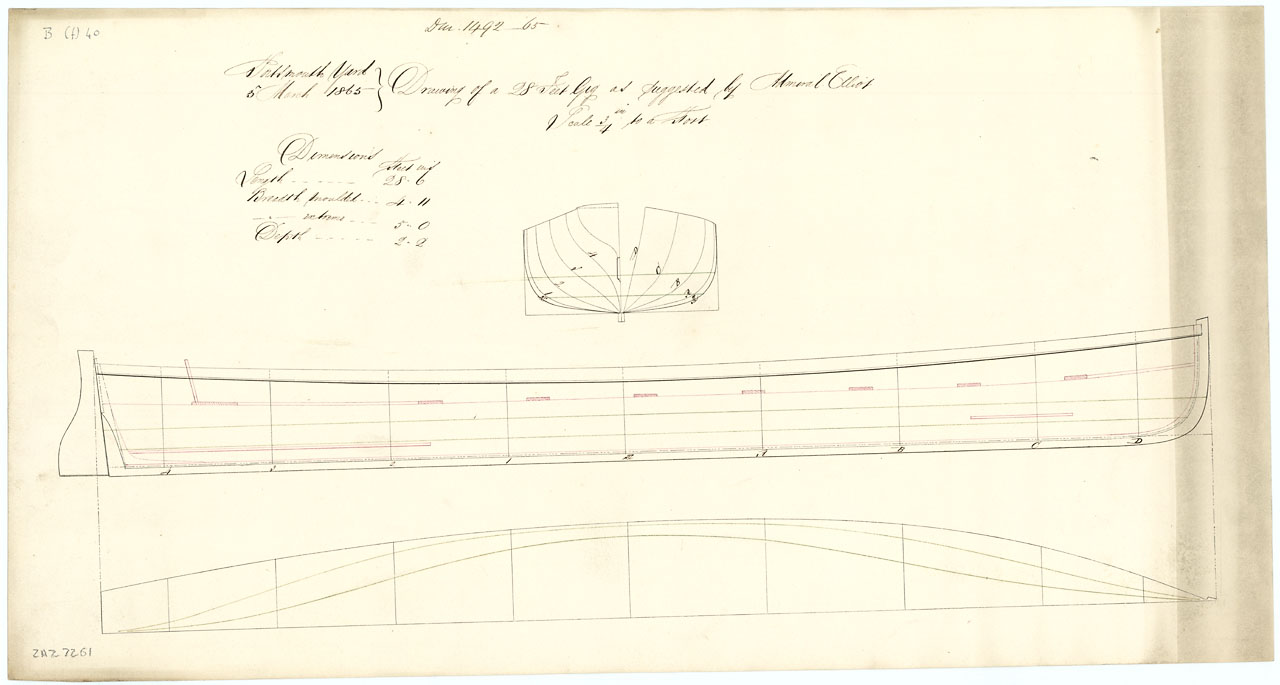 B (f) 40
1492 - 65
Portsmouth Yard
5 March 1865
Drawing of a 28 Feet Gig as suggested by Admiral Elliot
Scale 3/4 in to a Foot
Dimensions
Feet ins
Length - - - - - 28 - 6
Breadth moulded - - - 4 - 11
- " - extreme - - - - 5 - 0
Depth - - - - - 2 - 2
D
C
B
A
4
3
2
1
A
B
C
D
ZAZ 7261